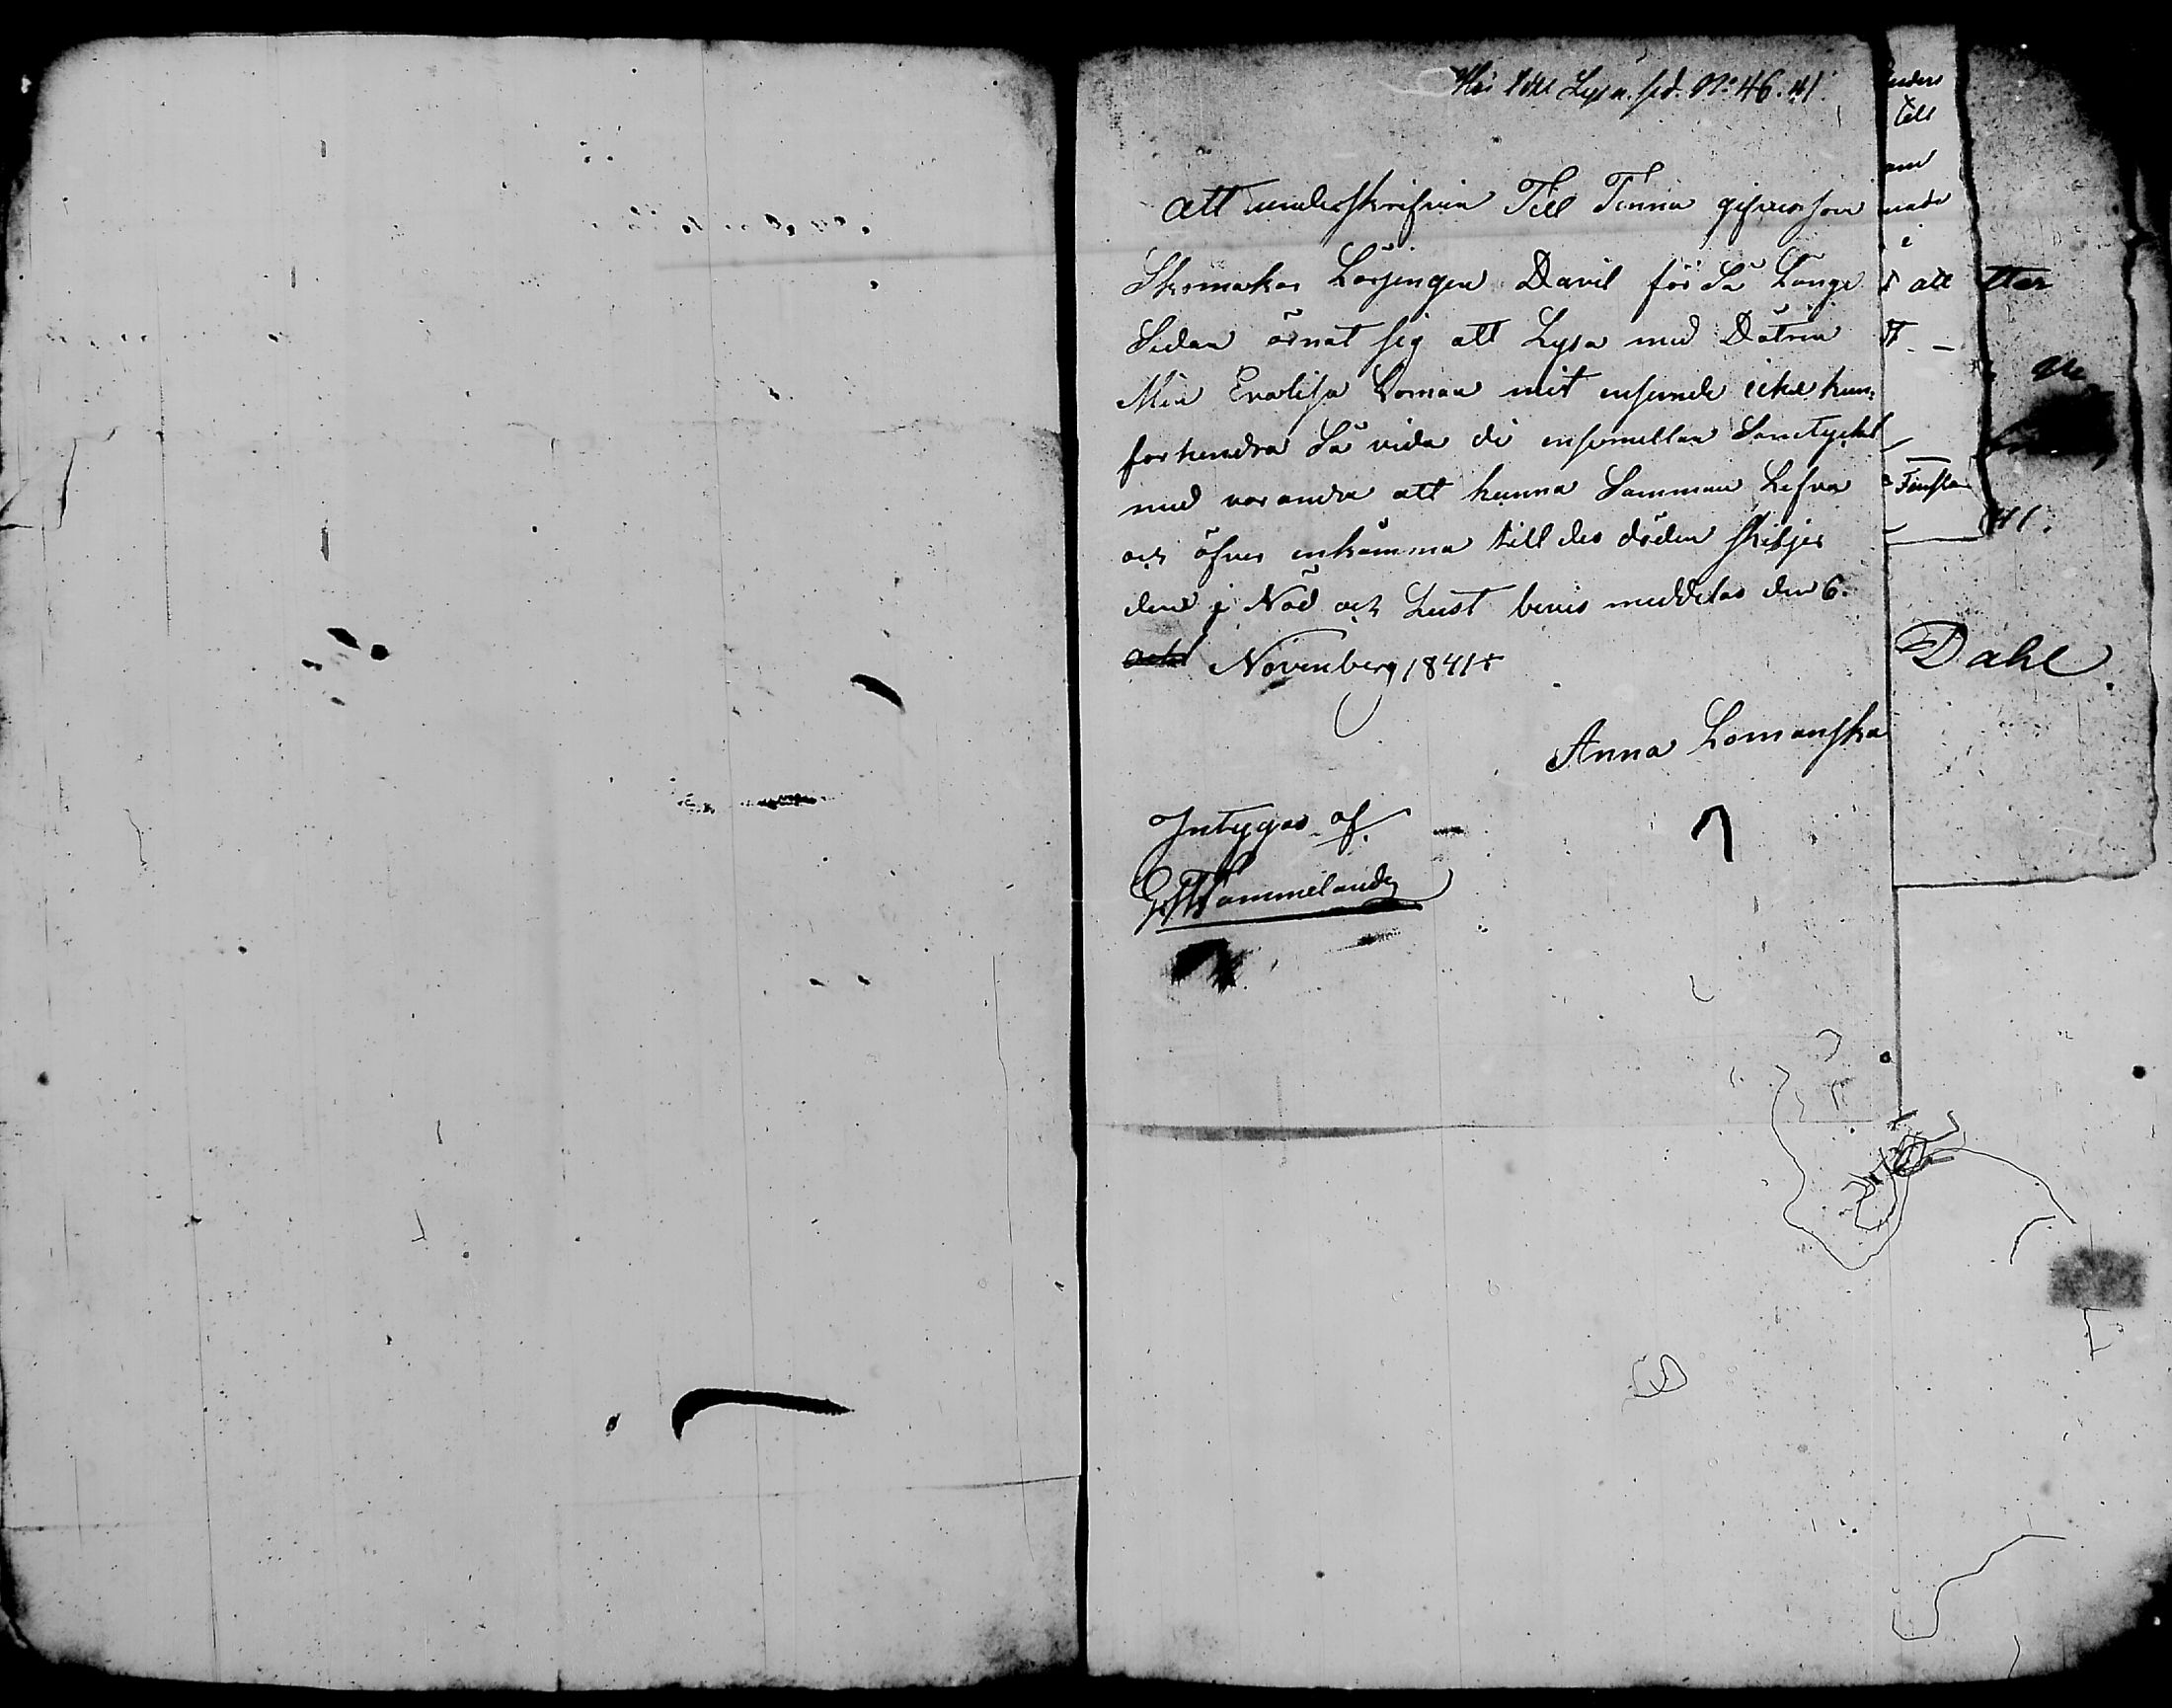 Lysn. sed. No: 46. 41.
att underskrifvin Till Tenna gifver sou
Skomakar Lärjengen David för Så Länge
Sedan ärnat sig att Lysa med Dåtren
Min Evalisa Loman mit ensende icke kun:
forhendra Så vida di ensemellan Samtyckt
med var andra att kunna Samman Lefva
och öfver enkämma till des döden skiljer
dem i Nöd och Lust bevis meddelas den 6.
November 1841
Anna Lomanska
Intygas af
Wammelander
till
i
att
Dahl
41.